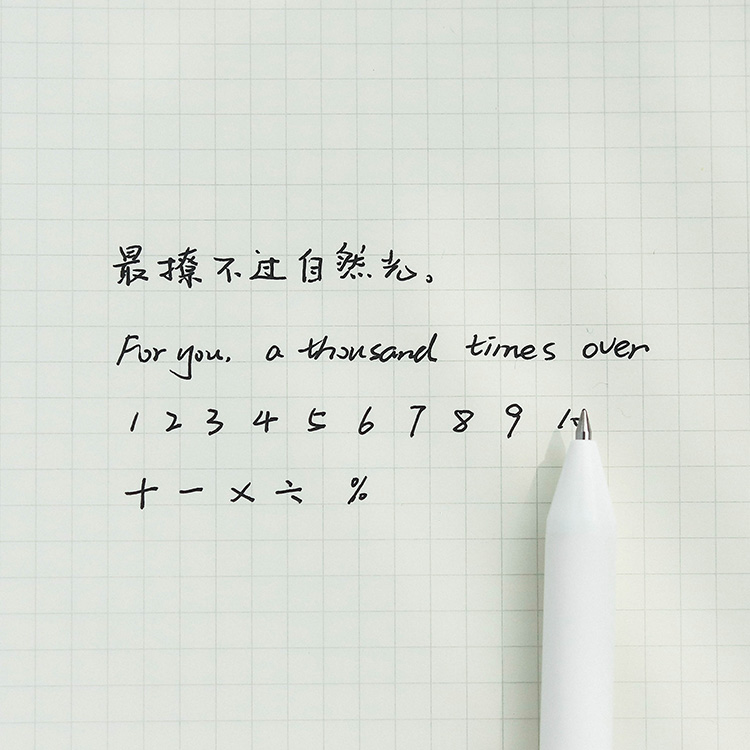 最撩不过自然光。
For you, a thousand times over
1 2 3 4 5 6 7 8 9
+ - × ÷ %